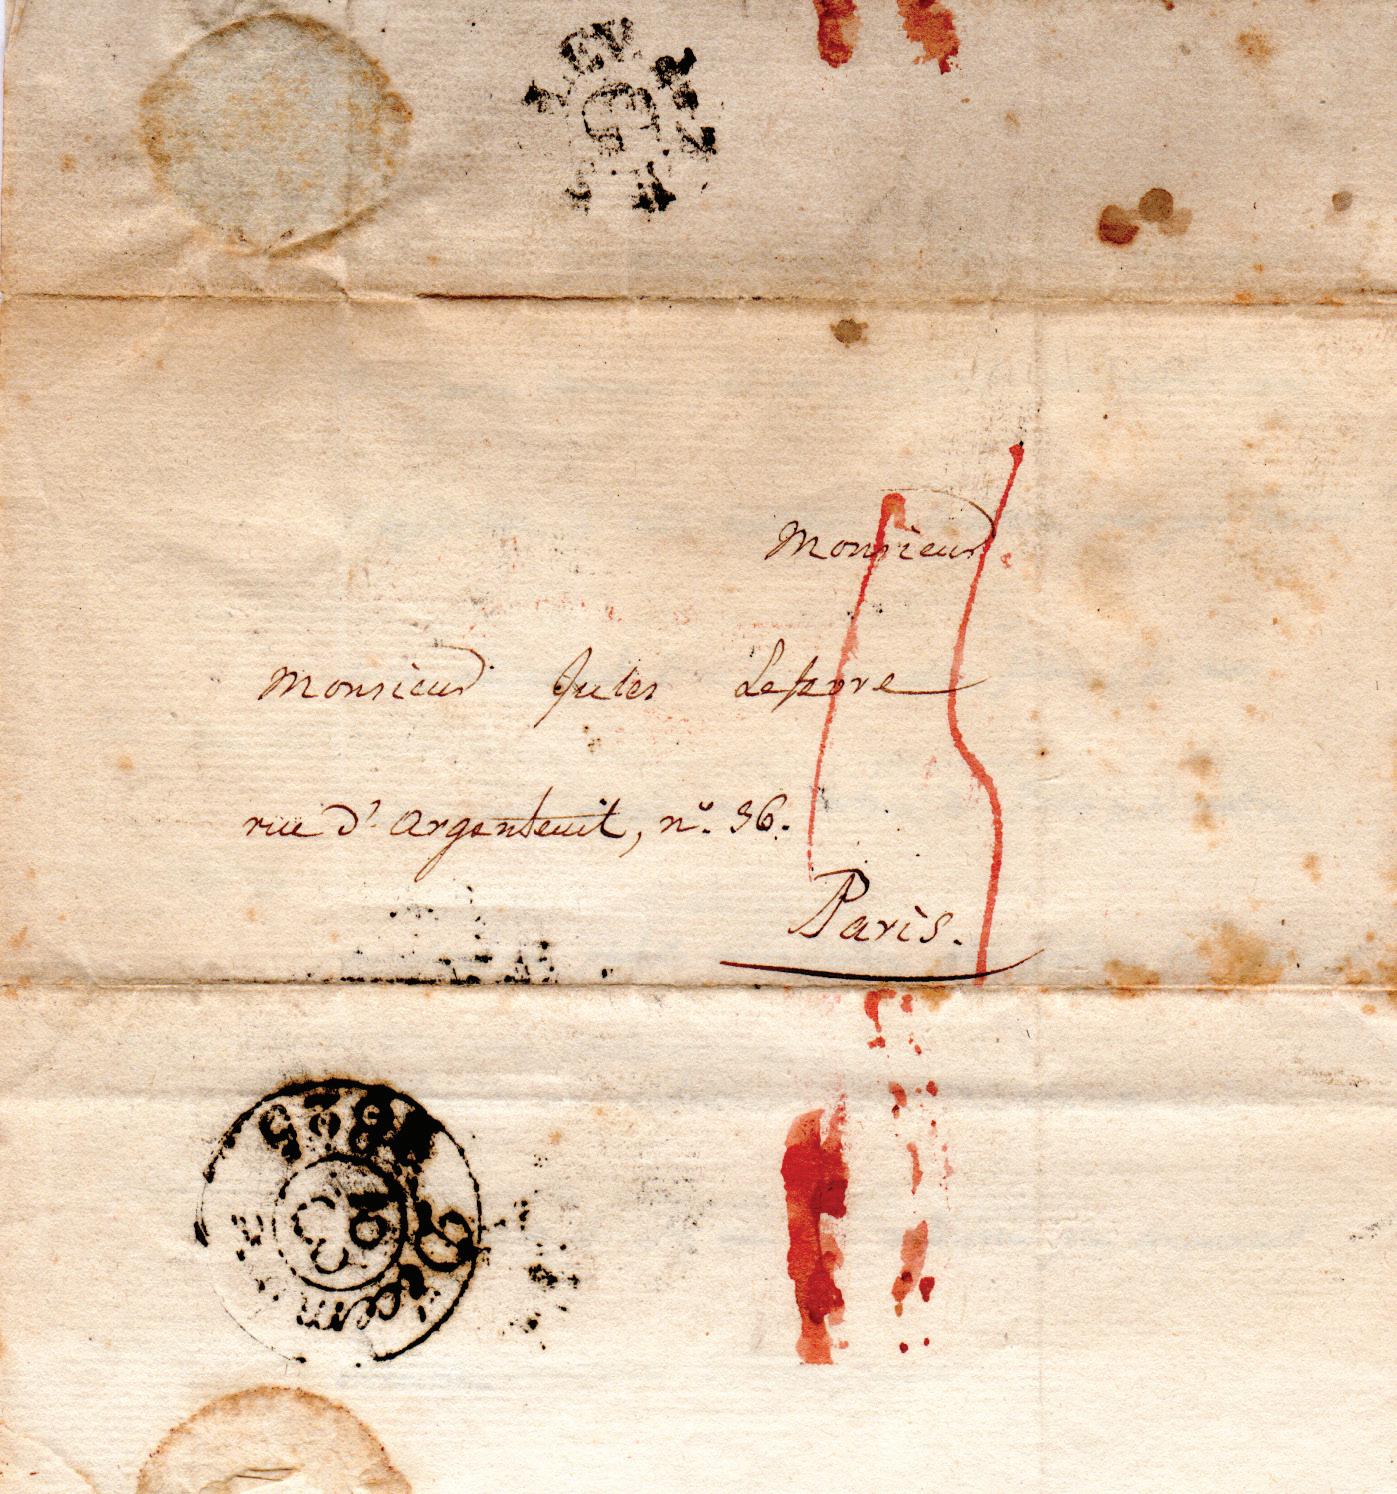 Monsieur
Monsieur Jules Lefevre
rue d'Argenteuil, n°. 36.
Paris.
1825
Décembre